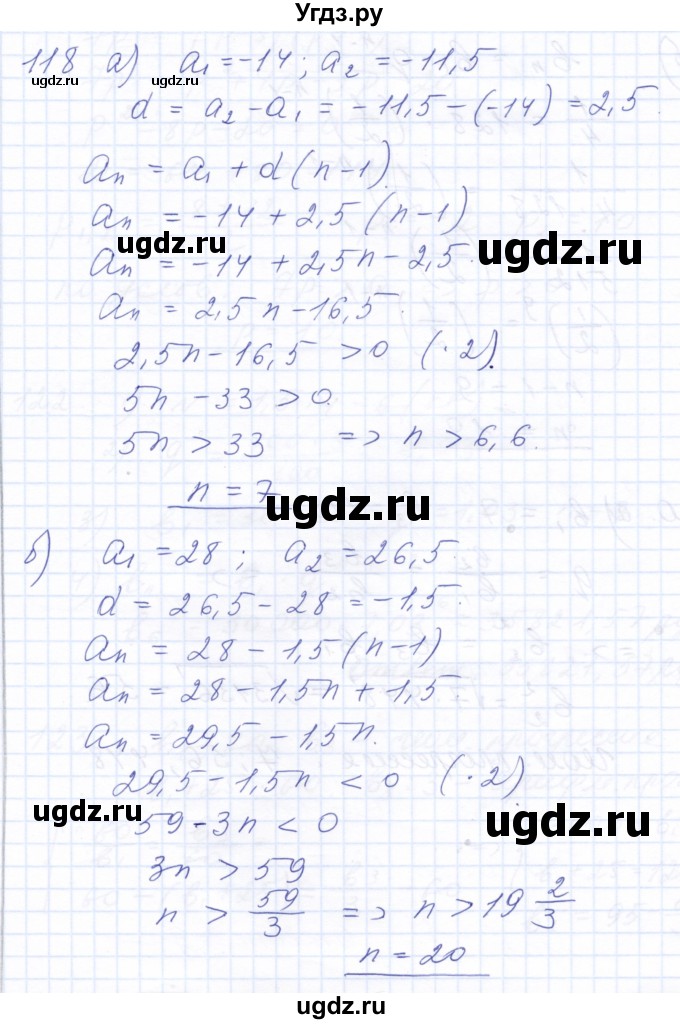 Угдз.ру
118 а) a₁ = -14; a₂ = -11,5
d = a₂ - a₁ = -11,5 - (-14) = 2,5.
aₙ = a₁ + d(n-1).
aₙ = -14 + 2,5(n-1)
ugdz.ru
ugdz.ru
aₙ = -14 + 2,5n - 2,5.
aₙ = 2,5n - 16,5.
2,5n - 16,5 > 0 (·2).
5n - 33 > 0.
5n > 33 => n > 6,6.
n = 7
ugdz.ru
ugdz.ru
б) a₁ = 28; a₂ = 26,5.
d = 26,5 - 28 = -1,5.
aₙ = 28 - 1,5(n-1)
aₙ = 28 - 1,5n + 1,5.
aₙ = 29,5 - 1,5n.
29,5 - 1,5n < 0 (·2)
ugdz.ru
ugdz.ru
59 - 3n < 0
3n > 59
n > 59/3 => n > 19 2/3
n = 20
ugdz.ru